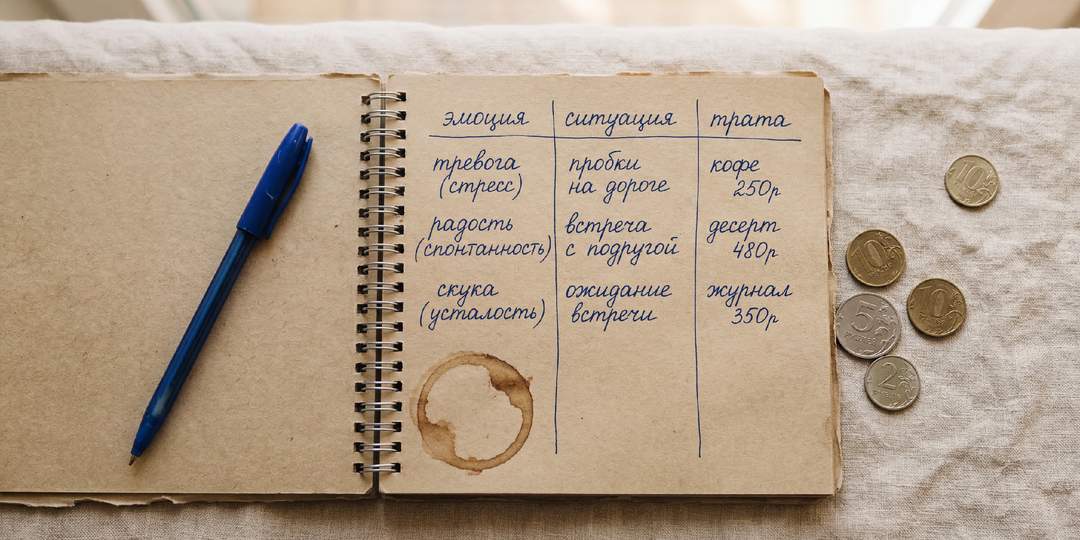 эмоция ситуация трата
тревога пробки кофе
(стресс) на дороге 250р
радость встреча десерт
(спонтанность) с подругой 480р
скука ожидание журнал
(усталость) встречи 350р
10
10
10
5
2